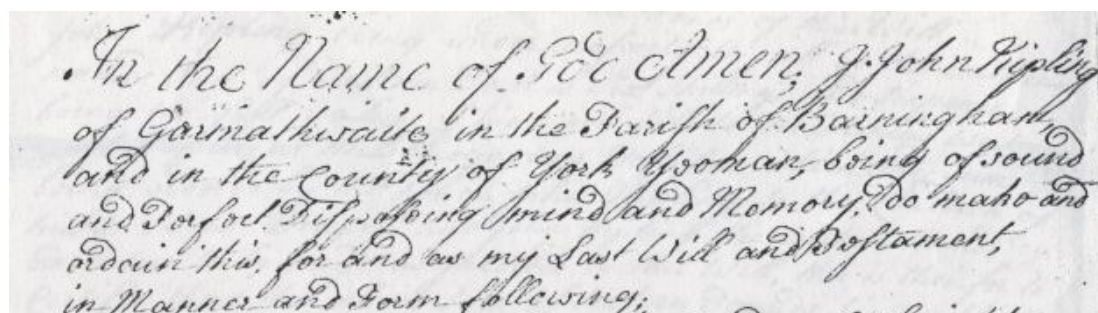 In the Name of God Amen, I John Kipling
of Garmathwaite in the Parish of Barningham,
and in the County of York Yeoman, being of sound
and Perfect Disposeing mind and Memory, Do make and
ordain this, for and as my Last Will and Testament,
in Manner and Form following;